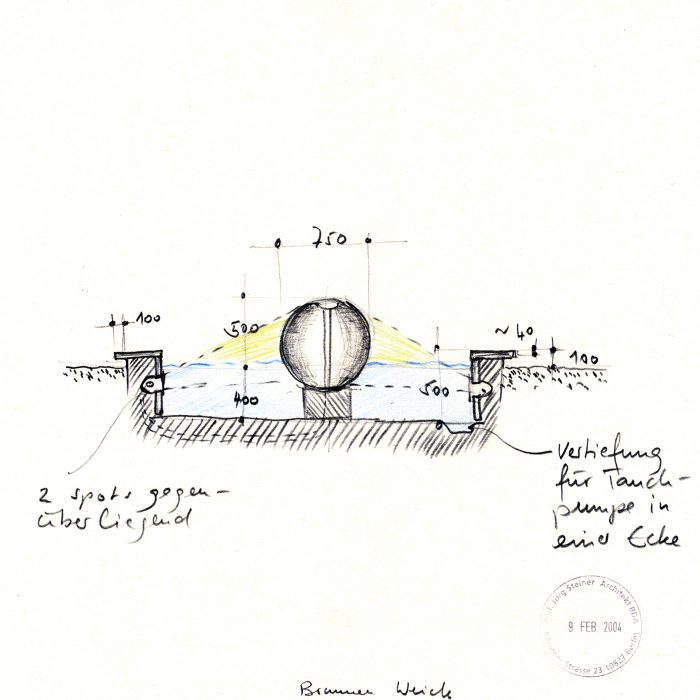 750
100
500
~ 40
100
400
500
2 spots gegen-
überliegend
Vertiefung
für Tauch-
pumpe in
einer Ecke
Prof. Jürg Steiner Architekt BDA
9 FEB. 2004
Strasse 23 10627 Berlin
Brunnen